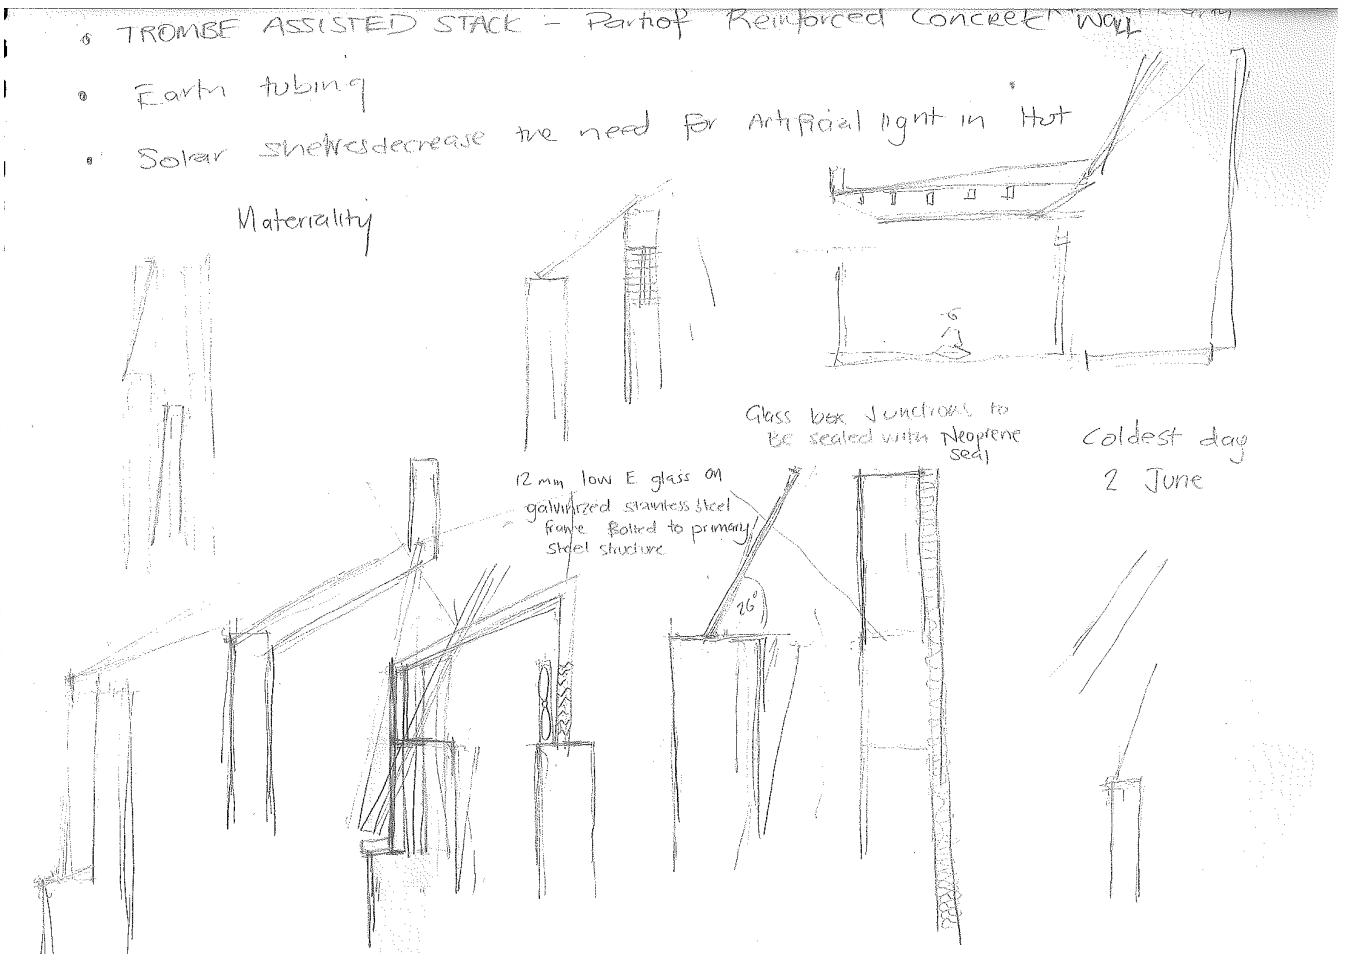 TROMBE ASSISTED STACK – Part of Reinforced Concrete Wall
Earth tubing
Solar shelves decrease the need for Artificial light in Hot
Materiality
Glass box Junctions to
be sealed with Neoprene
seal
Coldest day
2 June
12 mm low E glass on
galvinized stainless steel
frame Bolted to primary
steel structure
26°